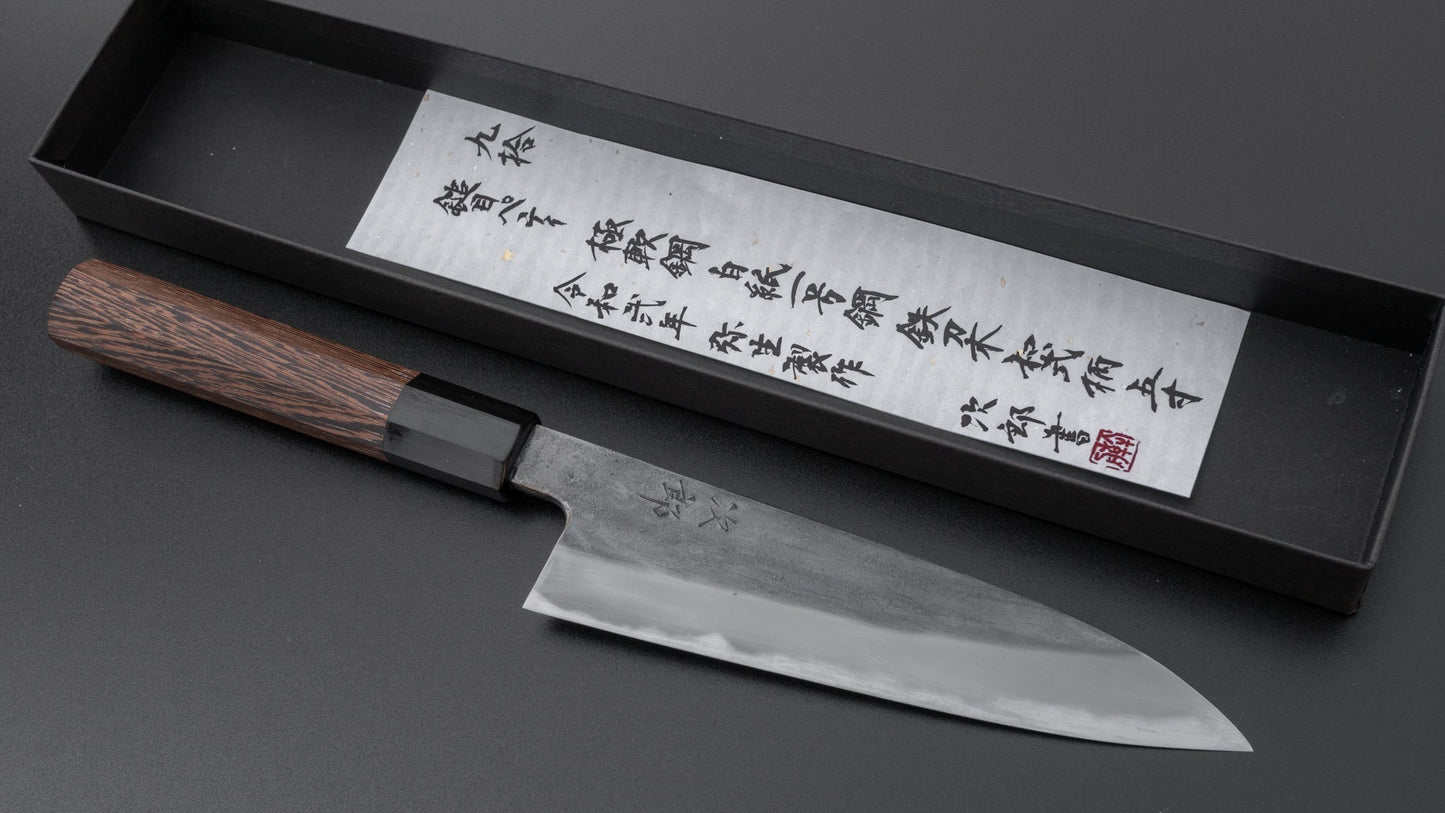 九拾
ペティ
極軟鋼 白紙一号鋼 鉄刀木 和式柄 五寸
令和弐年 弥生製作
次郎書
次郎